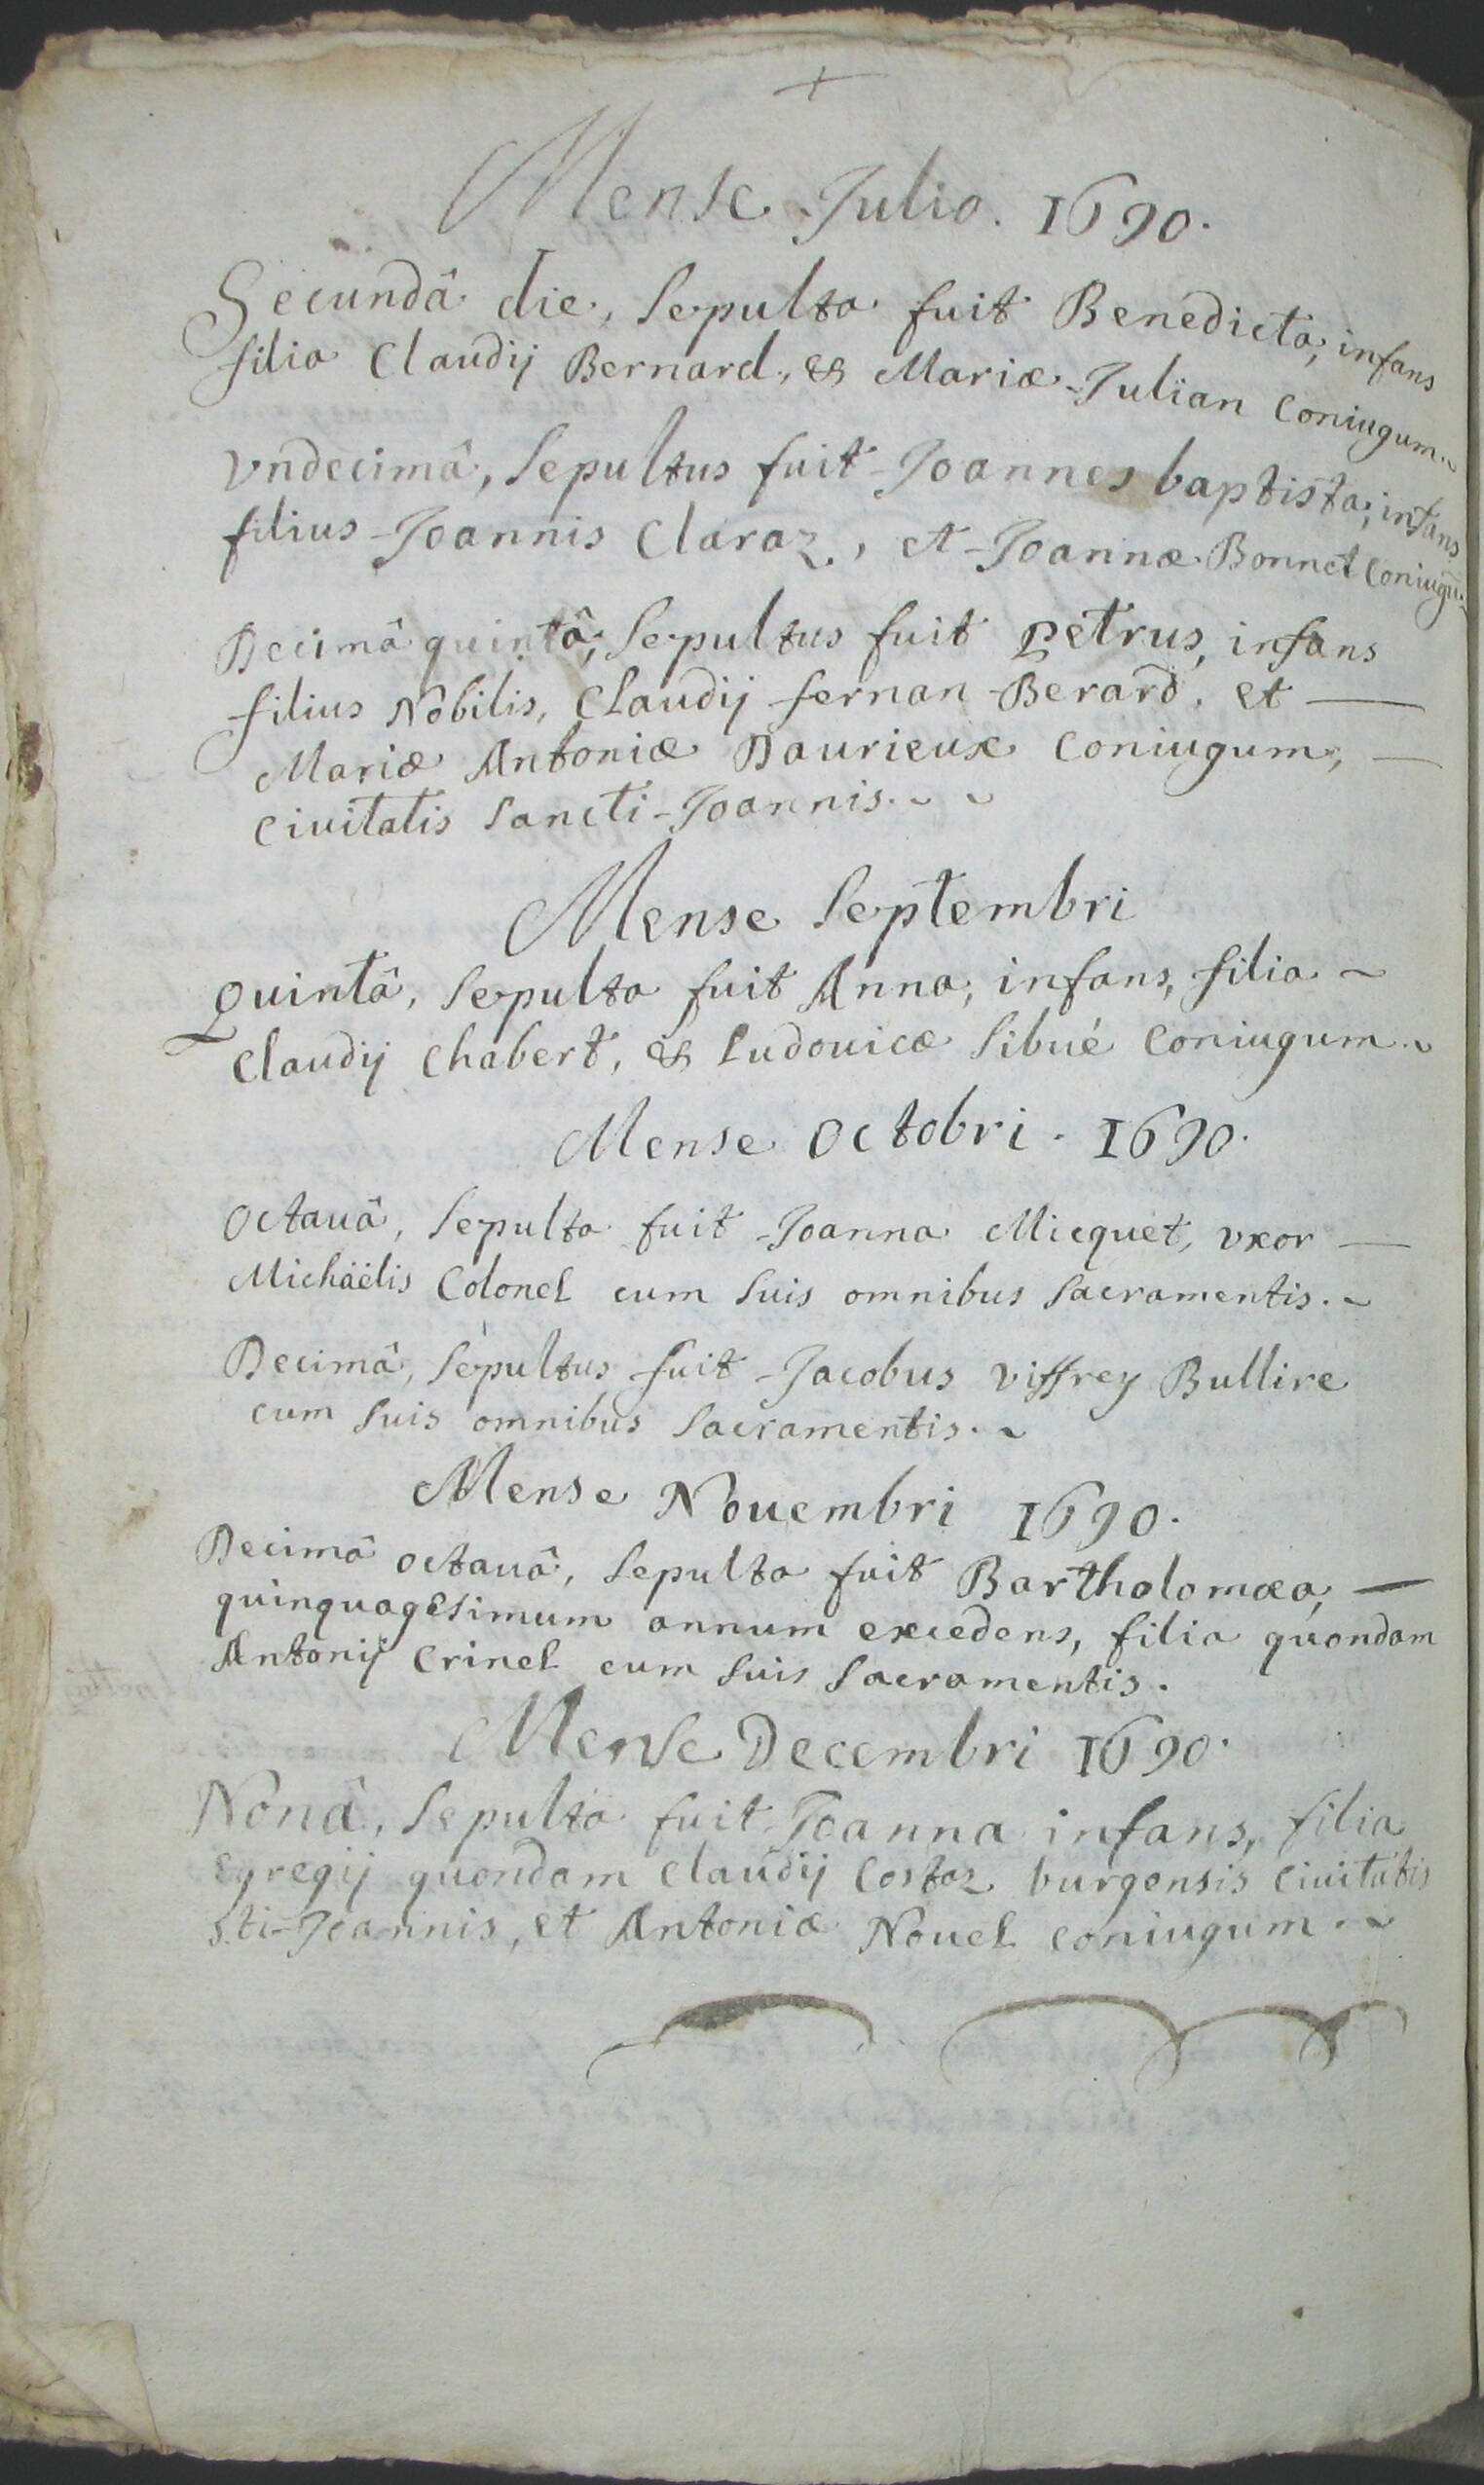 +
Mense Julio. 1690.
Secundâ die, Sepulta fuit Benedicta, infans
filia Claudij Bernard, & Mariæ Julian Coniugum.~
vndecimâ, Sepultus fuit Joannes baptista, infans
filius Joannis Claraz, et Joannæ Bonnet Coniugũ.~
Decimâ quintâ, Sepultus fuit Petrus, infans
filius Nobilis, Claudij fernan Berard, et —
Mariæ Antoniæ Daurieux Coniugum, —
Ciuitatis Sancti Joannis. ~ ~
Mense Septembri
Quintâ, Sepulta fuit Anna, infans, filia ~
Claudij Chabert, & Ludouicæ Sibué Coniugum.~
Mense Octobri. 1690.
Octauâ, Sepulta fuit Joanna Micquet, vxor —
Michäëlis Colonel cum Suis omnibus Sacramentis.~
Decimâ, Sepultus fuit Jacobus viffrey Bullire
cum Suis omnibus Sacramentis.~
Mense Nouembri 1690.
Decimâ octauâ, Sepulta fuit Bartholomæa, —
quinquagesimum annum excedens, filia quondam
Antonij Crinel cum Suis Sacramentis.
Mense Decembri 1690.
Nonâ, Sepulta fuit Joanna infans, filia
Egregij quondam Claudij Costaz burgensis Ciuitatis
Sti Joannis, et Antoniæ Nouel coniugum.~